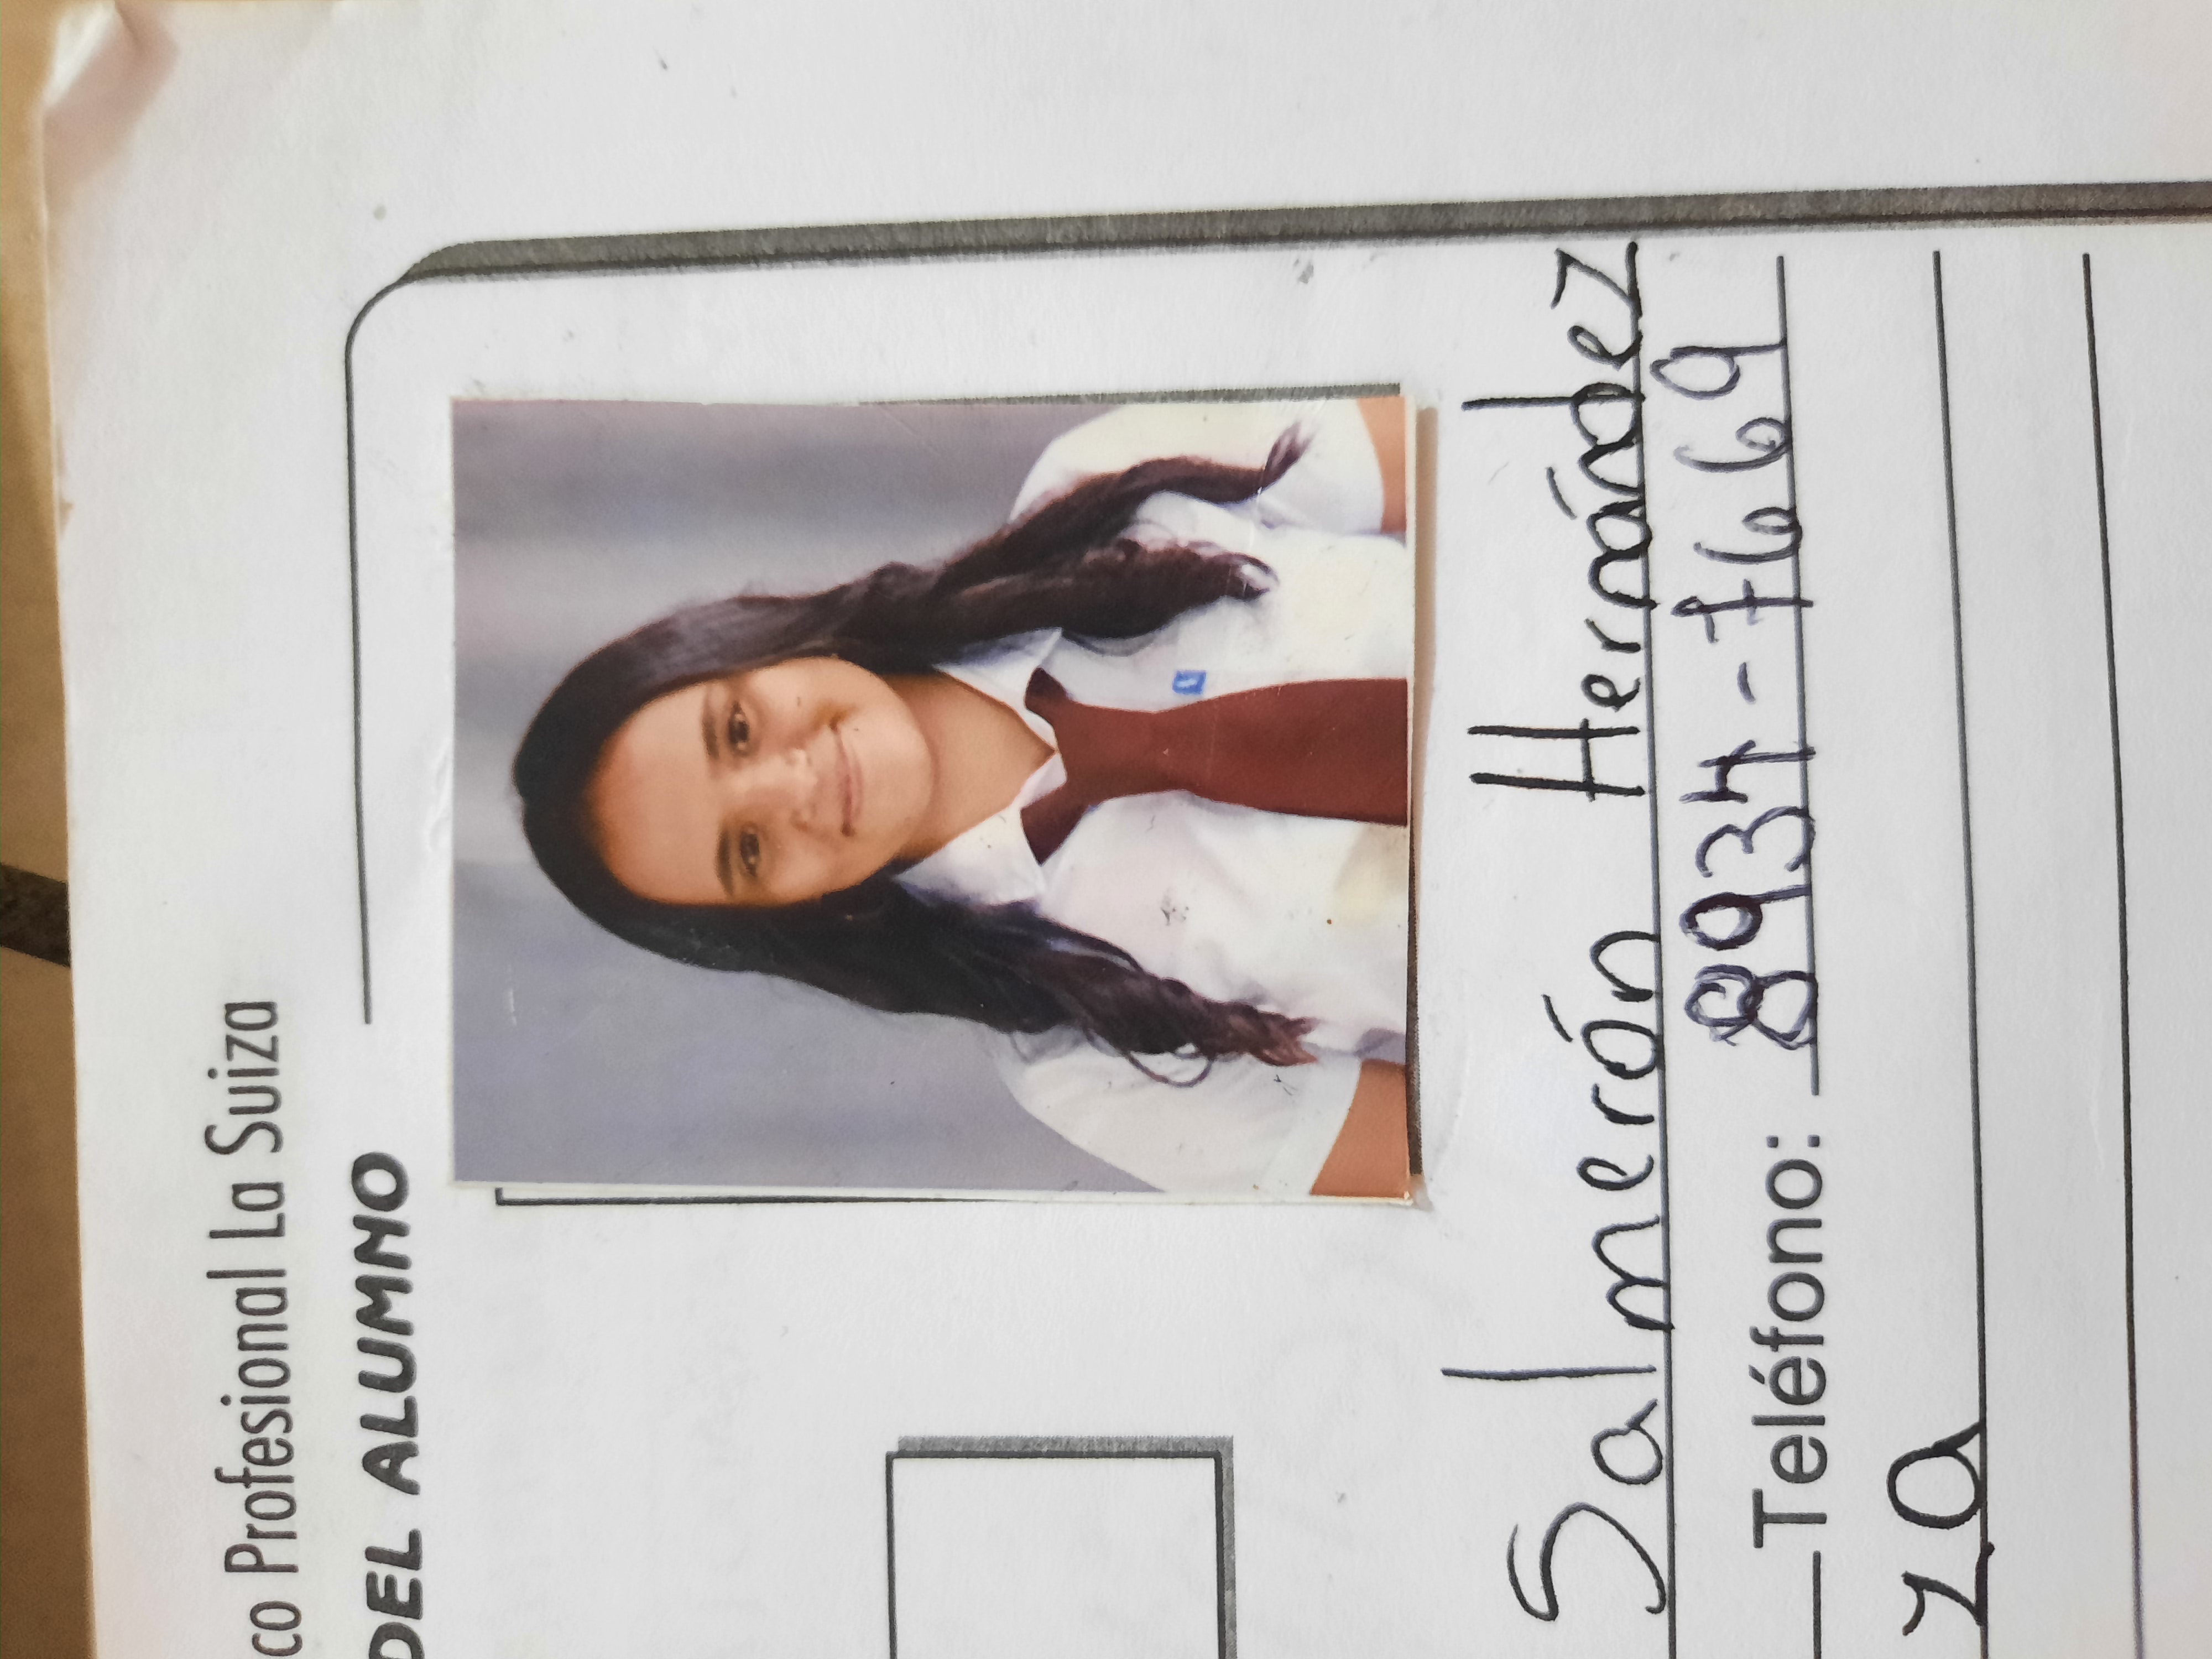 co Profesional La Suiza
DEL ALUMNO
Salmerón Hernández
Teléfono: 8934-7669
za